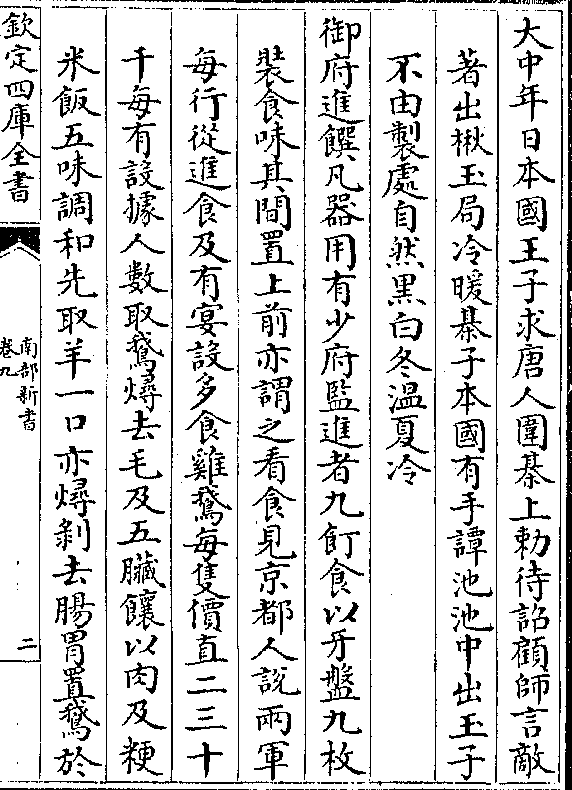 大中年日本國王子求唐人圍棊上勅待詔顧師言敵
著出楸玉局冷暖棊子本國有手譚池池中出玉子
不由製處自然黑白冬溫夏冷
御府進饌凡器用有少府監進者九飣食以牙盤九枚
裝食味其間置上前亦謂之看食見京都人說兩軍
每行從進食及有宴設多食雞鵞每隻價直二三十
千每有設據人數取鵞燖去毛及五臟釀以肉及粳
米飯五味調和先取羊一口亦燖剝去腸胃置鵞於
欽定四庫全書
南部新書
卷九
二